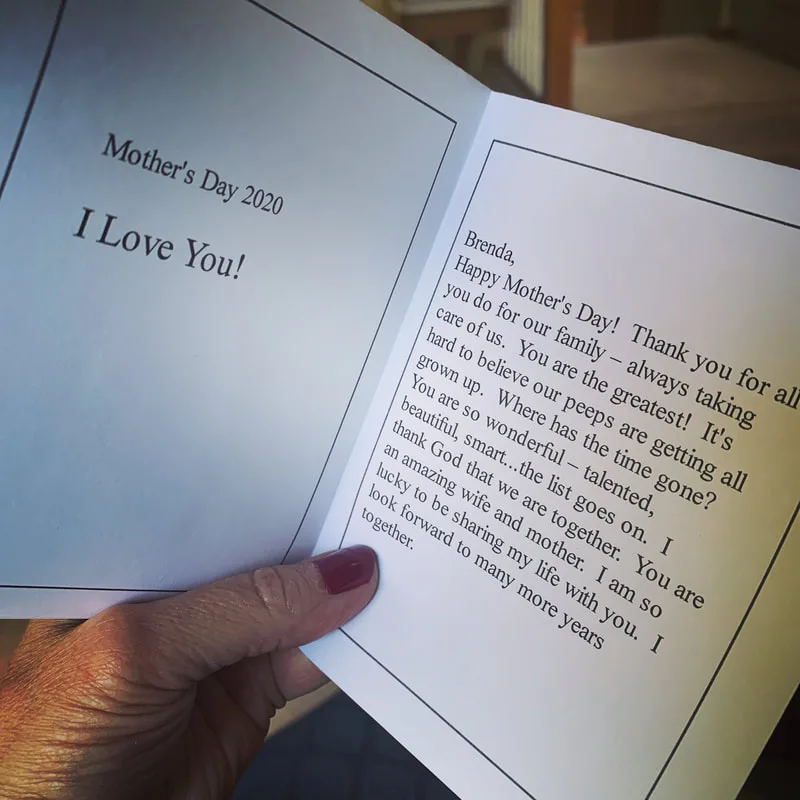 Mother's Day 2020
I Love You!
Brenda,
Happy Mother's Day! Thank you for all
you do for our family – always taking
care of us. You are the greatest! It's
hard to believe our peeps are getting all
grown up. Where has the time gone?
You are so wonderful – talented,
beautiful, smart...the list goes on. I
thank God that we are together. You are
an amazing wife and mother. I am so
lucky to be sharing my life with you. I
look forward to many more years
together.